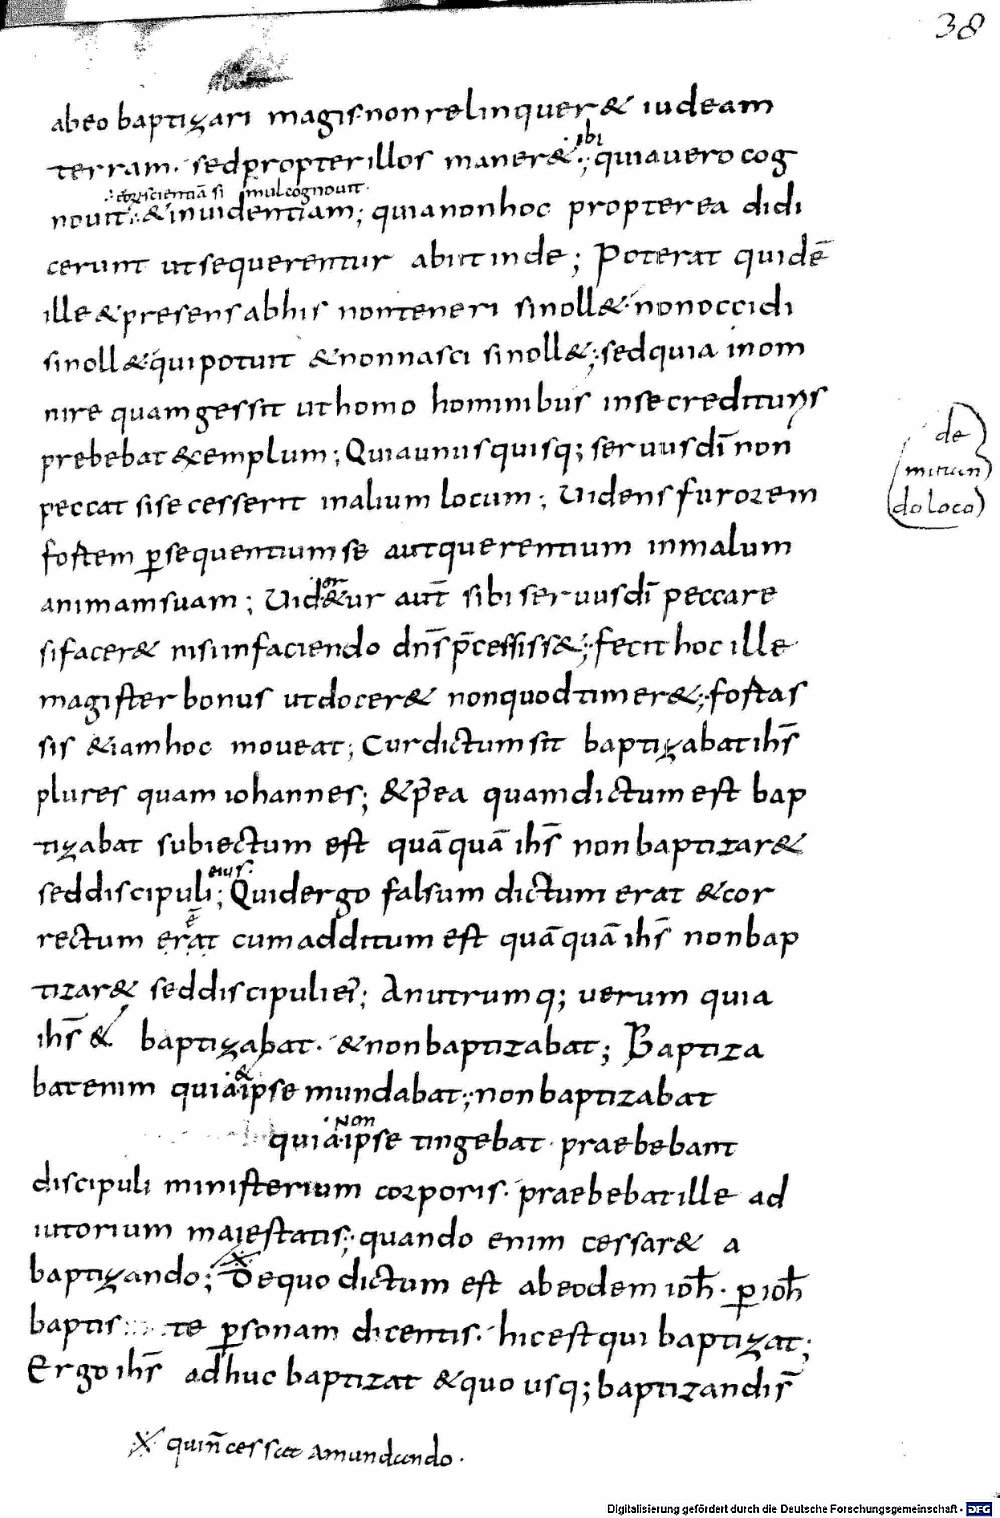 38
abeo baptizari magis non relinquer& iudeam
terram. sed propter illos maner& ibi; quia uero cog
nouit; & inuidentiam; quia non hoc propterea didi
cerunt ut sequerentur abiit inde; Poterat quidē
ille & presens ab his non teneri si noll& non occidi
si noll& qui potuit & non nasci si noll&; sed quia in om
ni re quam gessit ut homo hominibus in se credituris
prebebat exemplum; Quia unusquisq; seruus dī non
peccat si secesserit in alium locum; Uidens furorem
fostem persequentium se aut querentium in malum
animam suam; Uid&ur aut̄ sibi seruus dī peccare
si facer& nisi in faciendo dn̄s p̄cessiss&; fecit hoc ille
magister bonus ut docer& non quod timer&; fostas
sis &iam hoc moueat; Cur dictum sit baptizabat ih̄s
plures quam iohannes; & p̄ea quam dictum est bap
tizabat subiectum est quāquā ih̄s non baptizar&
sed discipuli eius; Quid ergo falsum dictum erat & cor
rectum erat cum additum est quāquā ih̄s non bap
tizar& sed discipuli ei; An utrumq; uerum quia
ih̄s & baptizabat. & non baptizabat; Baptiza
bat enim quia ipse mundabat; non baptizabat
quia non ipse tingebat. praebebant
discipuli ministerium corporis. praebebat ille ad
iutorium maiestatis; quando enim cessar& a
baptizando; De quo dictum est ab eodem ioh̄. per ioh̄
baptis te personam dicentis. hic est qui baptizat;
Ergo ih̄s adhuc baptizat & quo usq; baptizandi s̄
quin̄ cessat a mundando.
de
mutan
do loco
Digitalisierung gefördert durch die Deutsche Forschungsgemeinschaft - DFG